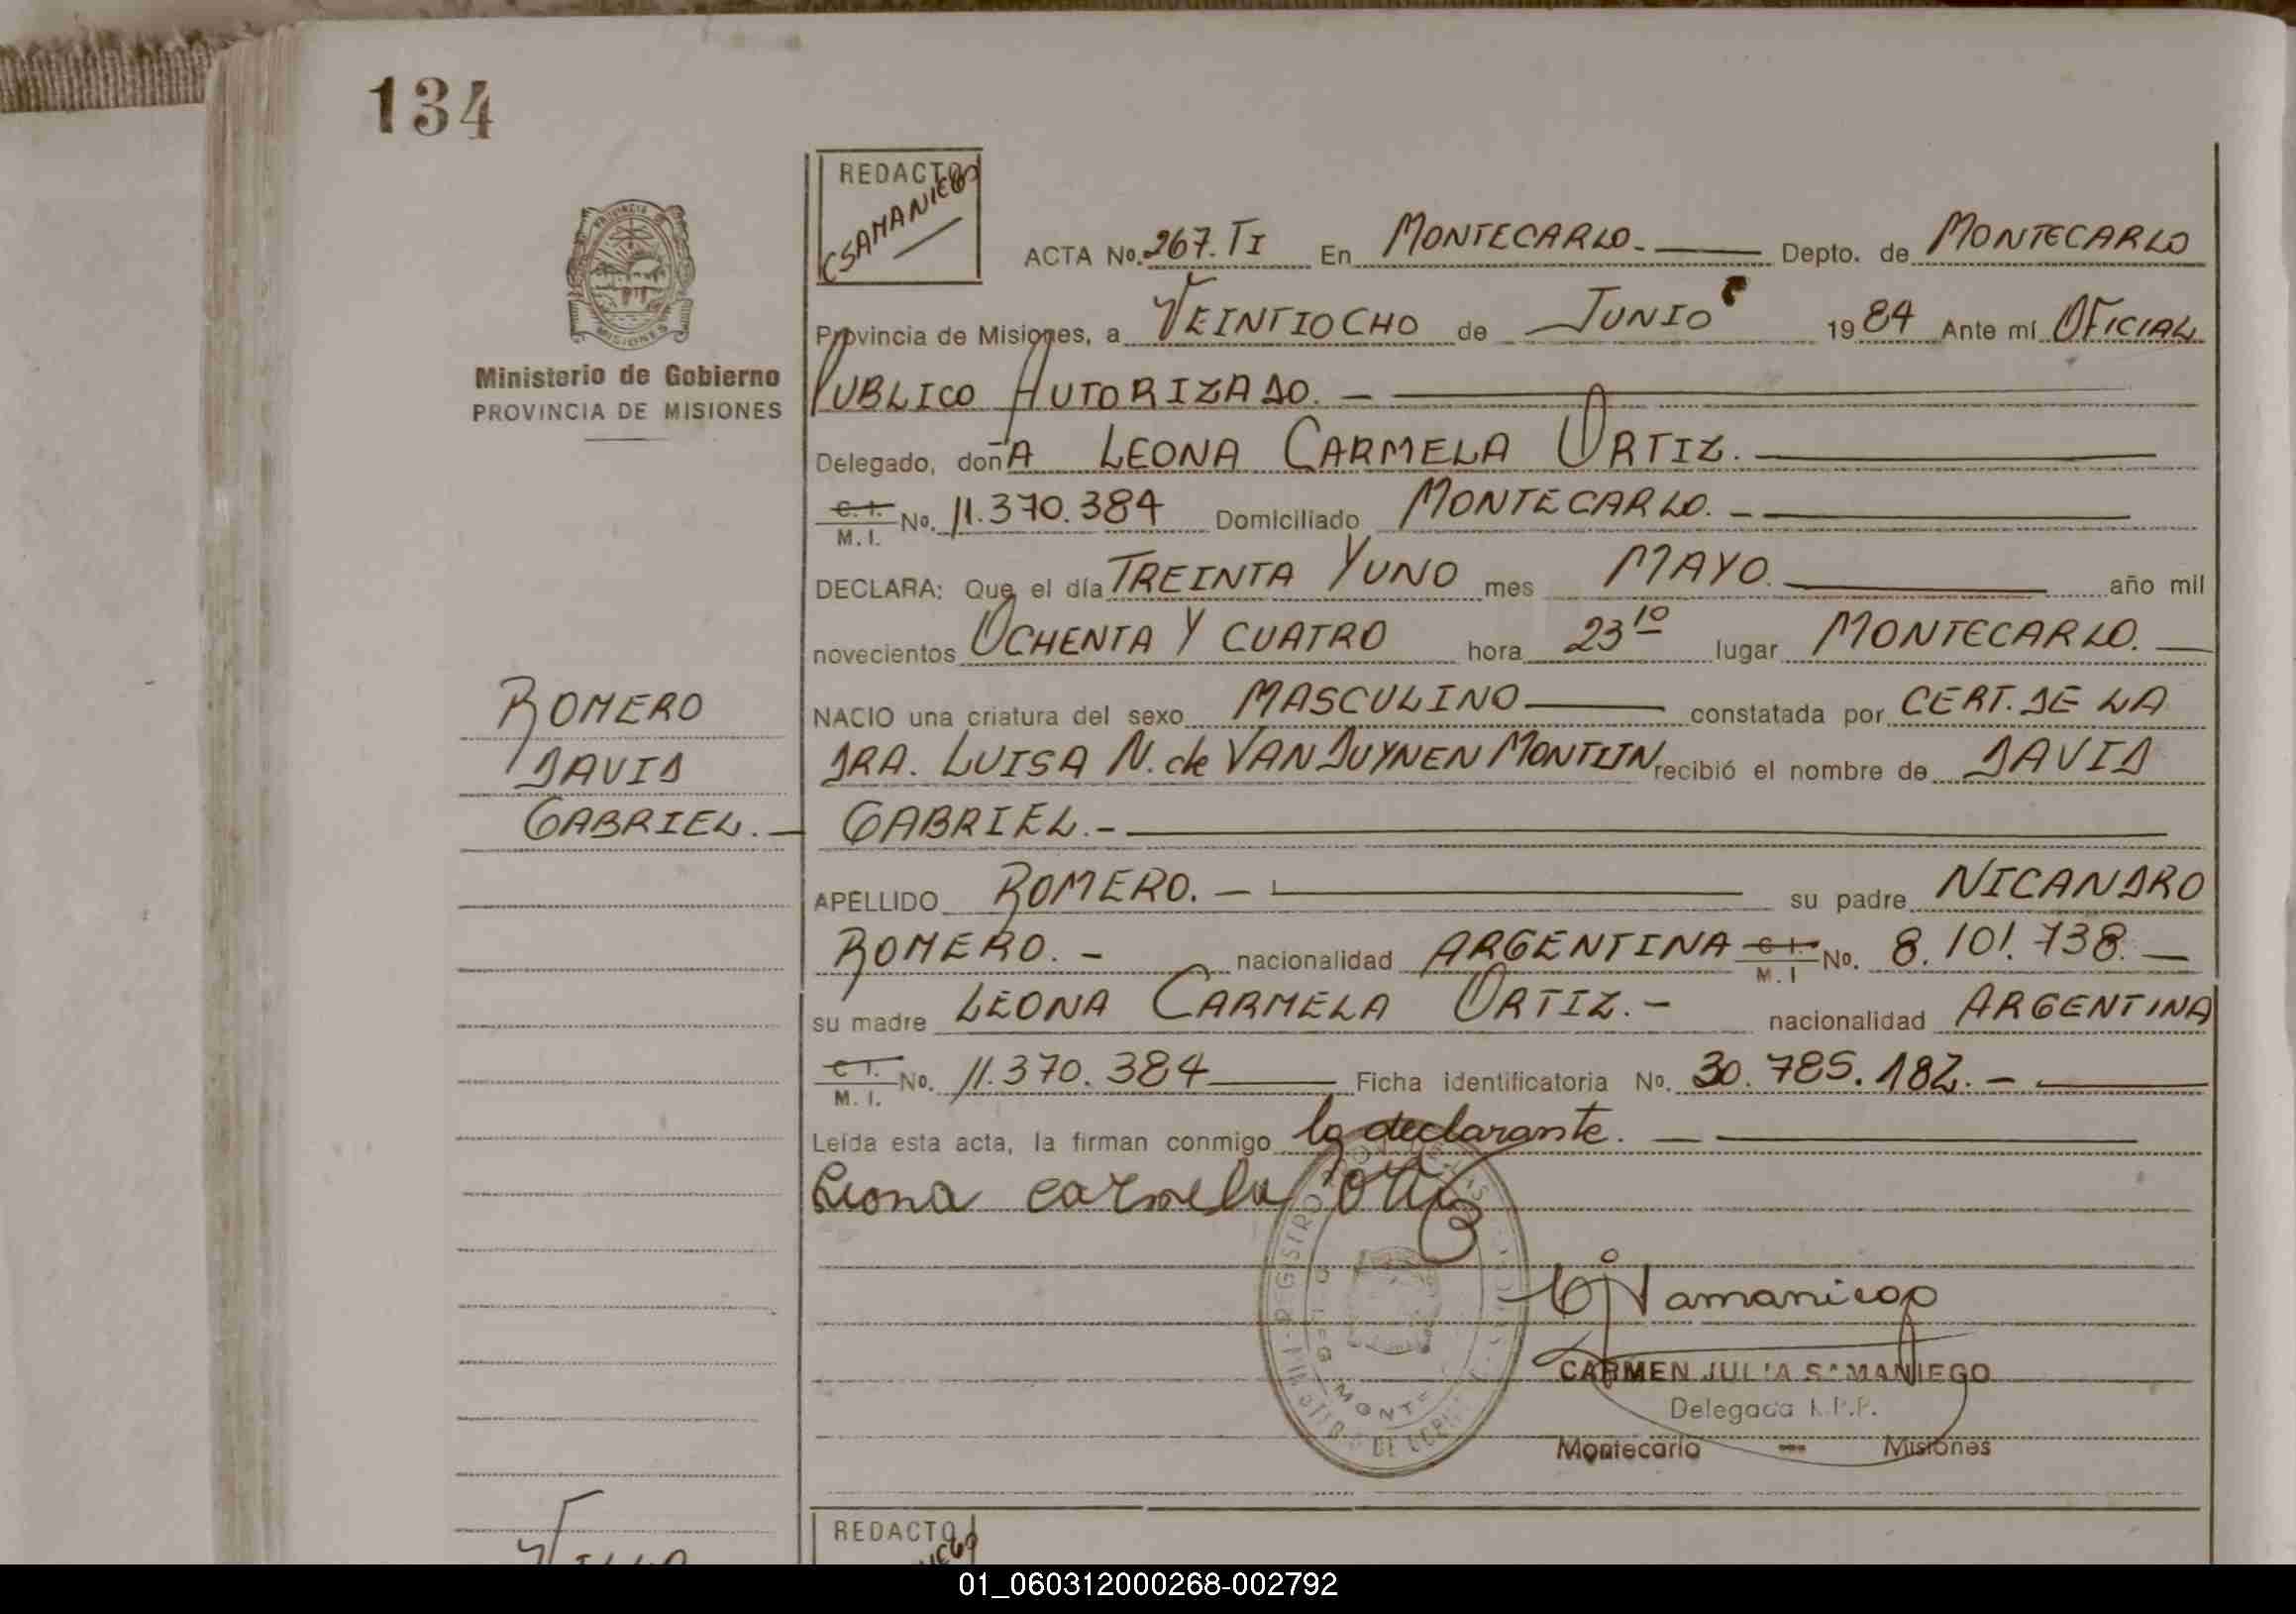 134
REDACTO
CSAMANIEGO
ACTA No. 267. TI En MONTECARLO.- Depto. de MONTECARLO
Provincia de Misiones, a VEINTIOCHO de JUNIO 1984 Ante mí OFICIAL
PUBLICO AUTORIZADO. -
MISIONES
Ministerio de Gobierno
PROVINCIA DE MISIONES
Delegado, doñA LEONA CARMELA ORTIZ.
C. I. M. I. No. 11.370.384 Domiciliado MONTECARLO. -
DECLARA: Que el día TREINTA YUNO mes MAYO. año mil
novecientos OCHENTA Y CUATRO hora 23 10 lugar MONTECARLO. —
NACIO una criatura del sexo MASCULINO constatada por CERT. DE LA
DRA. LUISA N. de VAN DUYNEN MONTIJN recibió el nombre de DAVID
GABRIEL.-
ROMERO
DAVID
GABRIEL. -
APELLIDO ROMERO. - su padre NICANDRO
ROMERO. - nacionalidad ARGENTINA C. I. M. I No. 8.101.738. —
su madre LEONA CARMELA ORTIZ. - nacionalidad ARGENTINA
C I. M. I. No. 11.370.384 Ficha identificatoria No. 30.785.182. -
Leída esta acta, la firman conmigo la declarante. —
Leona carmela Ortiz
CJSamaniego
CARMEN JULIA SAMANIEGO
Delegada
Montecarlo — Misiones
REDACTO
01_060312000268-002792